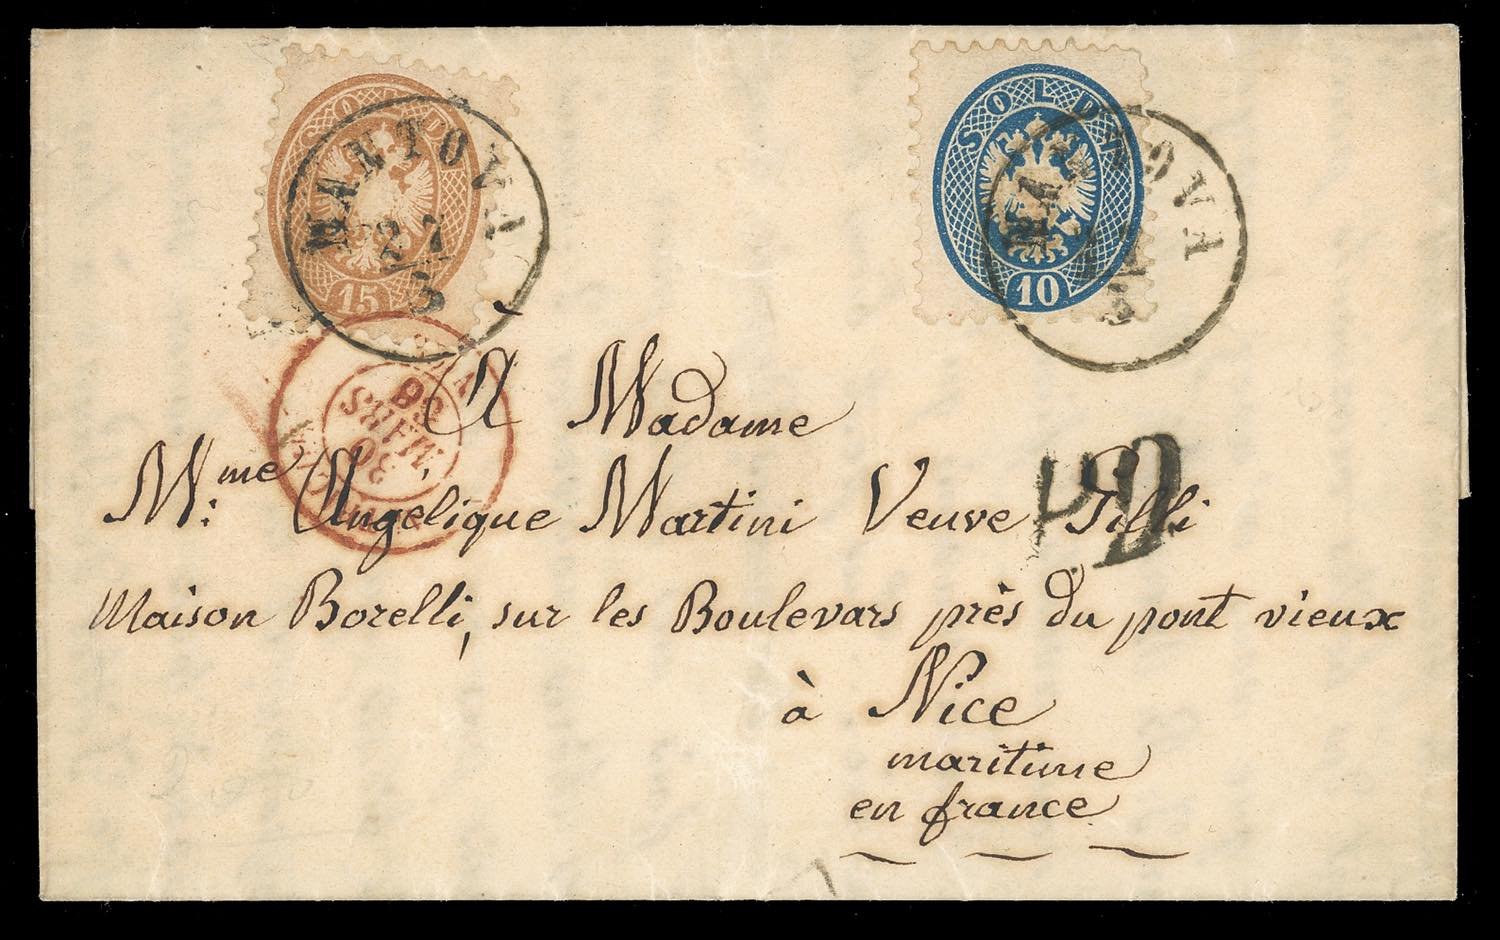 SOLDI
15
MANTOVA
27
3
SOLDI
10
MANTOVA
3
30
MARS
66
PD
A Madame
Mme: Angelique Martini Veuve Tilli
Maison Borelli, sur les Boulevars près du pont vieux
à Nice
maritime
en france